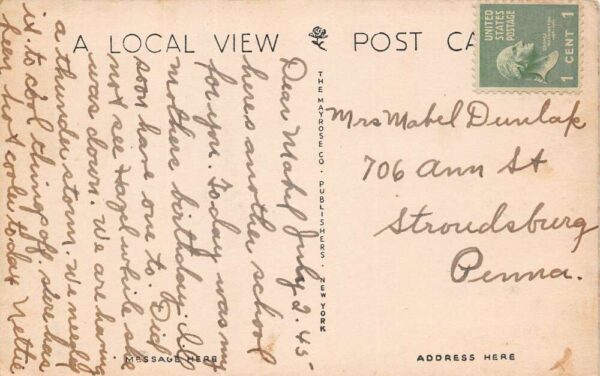 A LOCAL VIEW POST CA
UNITED STATES POSTAGE
1 CENT 1
THE MAYROSE CO. PUBLISHERS. NEW YORK
Dear Mabel July 2. 45-
heres another school
for you. Today was my
mothers birthday. Ill
soon have one to. Did
not see Hazel while she
was down. We are having
a thunder storm. We need
it. to cool things off. sure has
been hot cooler today Nettie
Mrs Mabel Dunlap
706 Ann St
Stroudsburg
Penna.
MESSAGE HERE
ADDRESS HERE